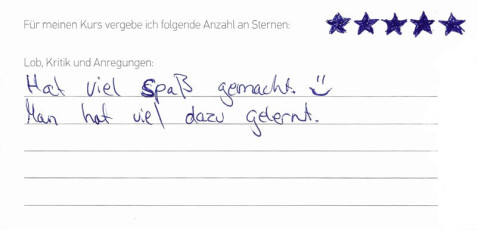 Für meinen Kurs vergebe ich folgende Anzahl an Sternen:
Lob, Kritik und Anregungen:
Hat viel Spaß gemacht.
Man hat viel dazu gelernt.